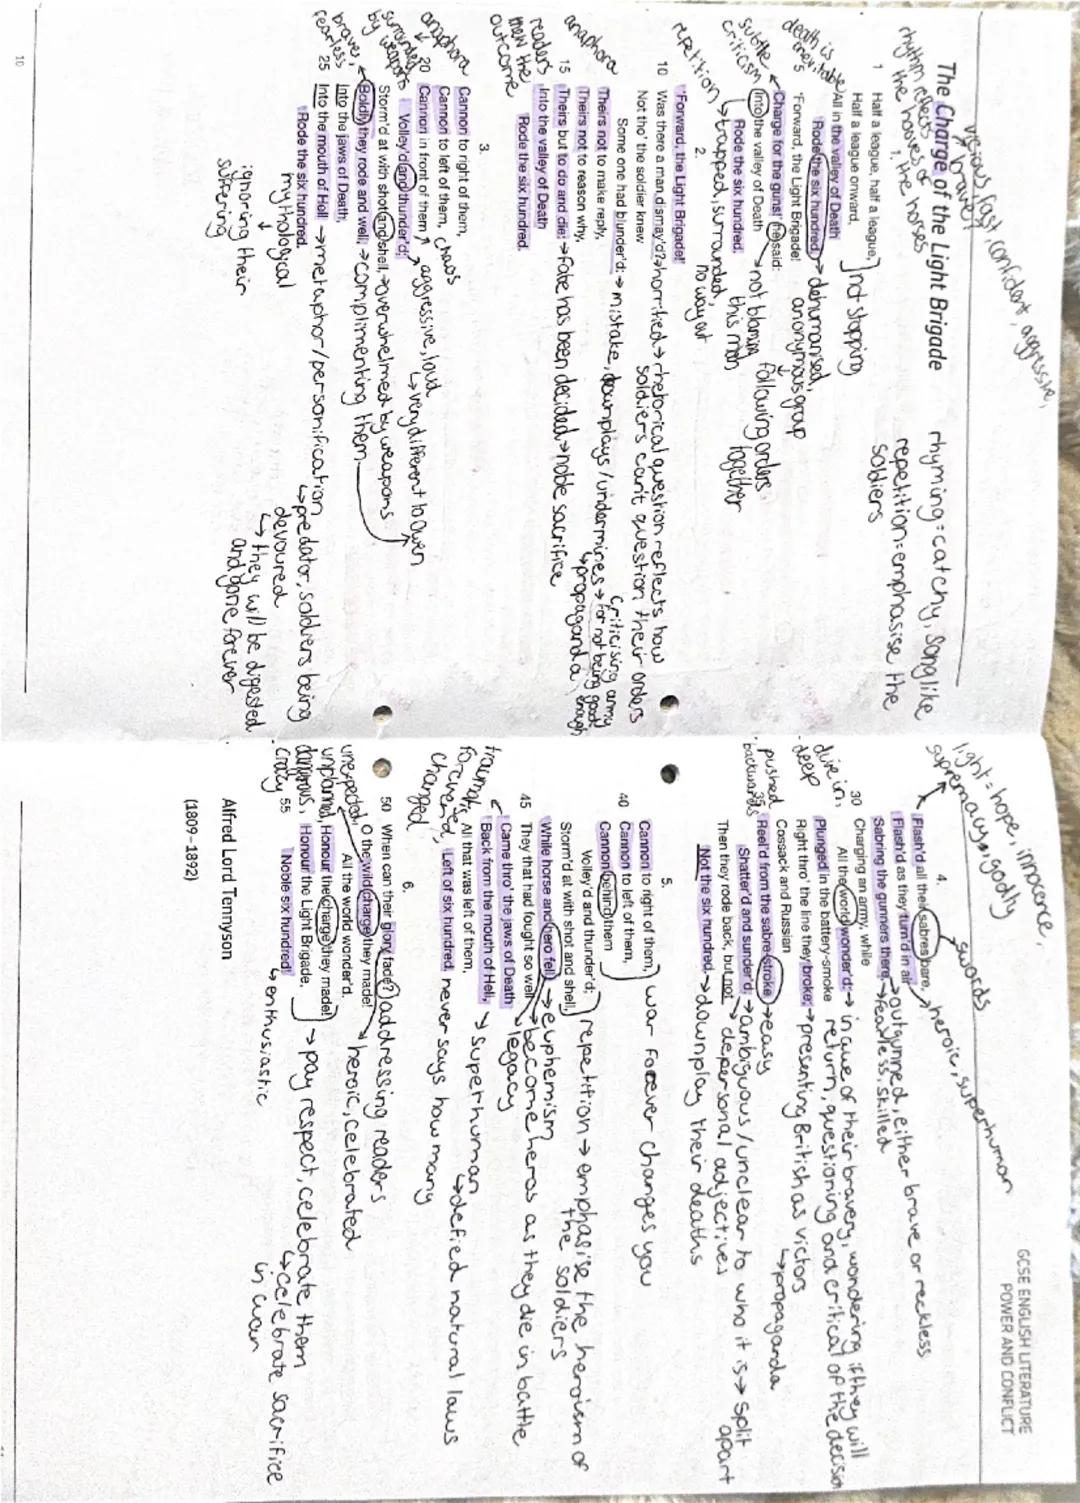 vicious, fast, confident, aggressive,
brave
The Charge of the Light Brigade
rhythm reflects
the hooves of
the horses
rhyming = catchy, songlike
repetition = emphasise the
soldiers
1.
1 Half a league, half a league,
Half a league onward,
not stopping
death is inevitable
All in the valley of Death
Rode the six hundred. → dehumanised,
anonymous group
5 'Forward, the Light Brigade!
following orders
together
subtle criticism
Charge for the guns!' he said: → not blaming
this man
Into the valley of Death
Rode the six hundred.
repetition → trapped, surrounded,
no way out
2.
'Forward, the Light Brigade!'
10 Was there a man dismay'd? → horrified → rhetorical question reflects how
soldiers can't question their orders
Not tho' the soldier knew
Some one had blunder'd: → mistake, downplays/undermines → criticising army
for not being good
enough
↳ propaganda
anaphora
Theirs not to make reply,
Theirs not to reason why,
15 Theirs but to do and die: → fate has been decided → noble sacrifice
readers knew the outcome
Into the valley of Death
Rode the six hundred.
3.
Cannon to right of them,
anaphora
Cannon to left of them, chaos
20 Cannon in front of them → aggressive, loud
↳ very different to Owen
surrounded by weapons
Volley'd and thunder'd;
Storm'd at with shot and shell, → overwhelmed by weapons
brave, fearless
Boldly they rode and well, → complimenting them
Into the jaws of Death,
25 Into the mouth of Hell → metaphor/personification
↳ predator, soldiers being
devoured
↳ they will be digested
and gone forever
Rode the six hundred.
mythological
ignoring their
suffering
10
GCSE ENGLISH LITERATURE
POWER AND CONFLICT
light = hope, innocence,
supremacy, godly
swords
4.
Flash'd all their sabres bare, → heroic, superhuman
Flash'd as they turn'd in air → outgunned, either brave or reckless
Sabring the gunners there, → fearless, skilled
30 Charging an army, while
All the world wonder'd: → in awe of their bravery, wondering if they will
return, questioning and critical of the decision
dive in,
deep
Plunged in the battery-smoke
Right thro' the line they broke; → presenting British as victors
↳ propaganda
Cossack and Russian
pushed
backwards
35 Reel'd from the sabre-stroke → easy
Shatter'd and sunder'd; → ambiguous/unclear to who it is → split
apart
Then they rode back, but not → depersonal adjectives
Not the six hundred. → downplay their deaths
5.
Cannon to right of them,
40 Cannon to left of them,
Cannon behind them
war forever changes you
Volley'd and thunder'd;
Storm'd at with shot and shell,
repetition → emphasise the heroism of
the soldiers
While horse and hero fell, → euphemism
45 They that had fought so well → become heros as they die in battle
↳ legacy
Came thro' the jaws of Death
Back from the mouth of Hell, → superhuman
↳ defied natural laws
traumatic,
forever
changed
All that was left of them,
Left of six hundred. never says how many
6.
50 When can their glory fade? addressing readers
O the wild charge they made! → heroic, celebrated
All the world wonder'd.
unexpected,
unplanned,
dangerous,
crazy
Honour the charge they made!
Honour the Light Brigade,
→ pay respect, celebrate them
↳ celebrate sacrifice
in war
55 Noble six hundred!
↳ enthusiastic
Alfred Lord Tennyson
(1809–1892)